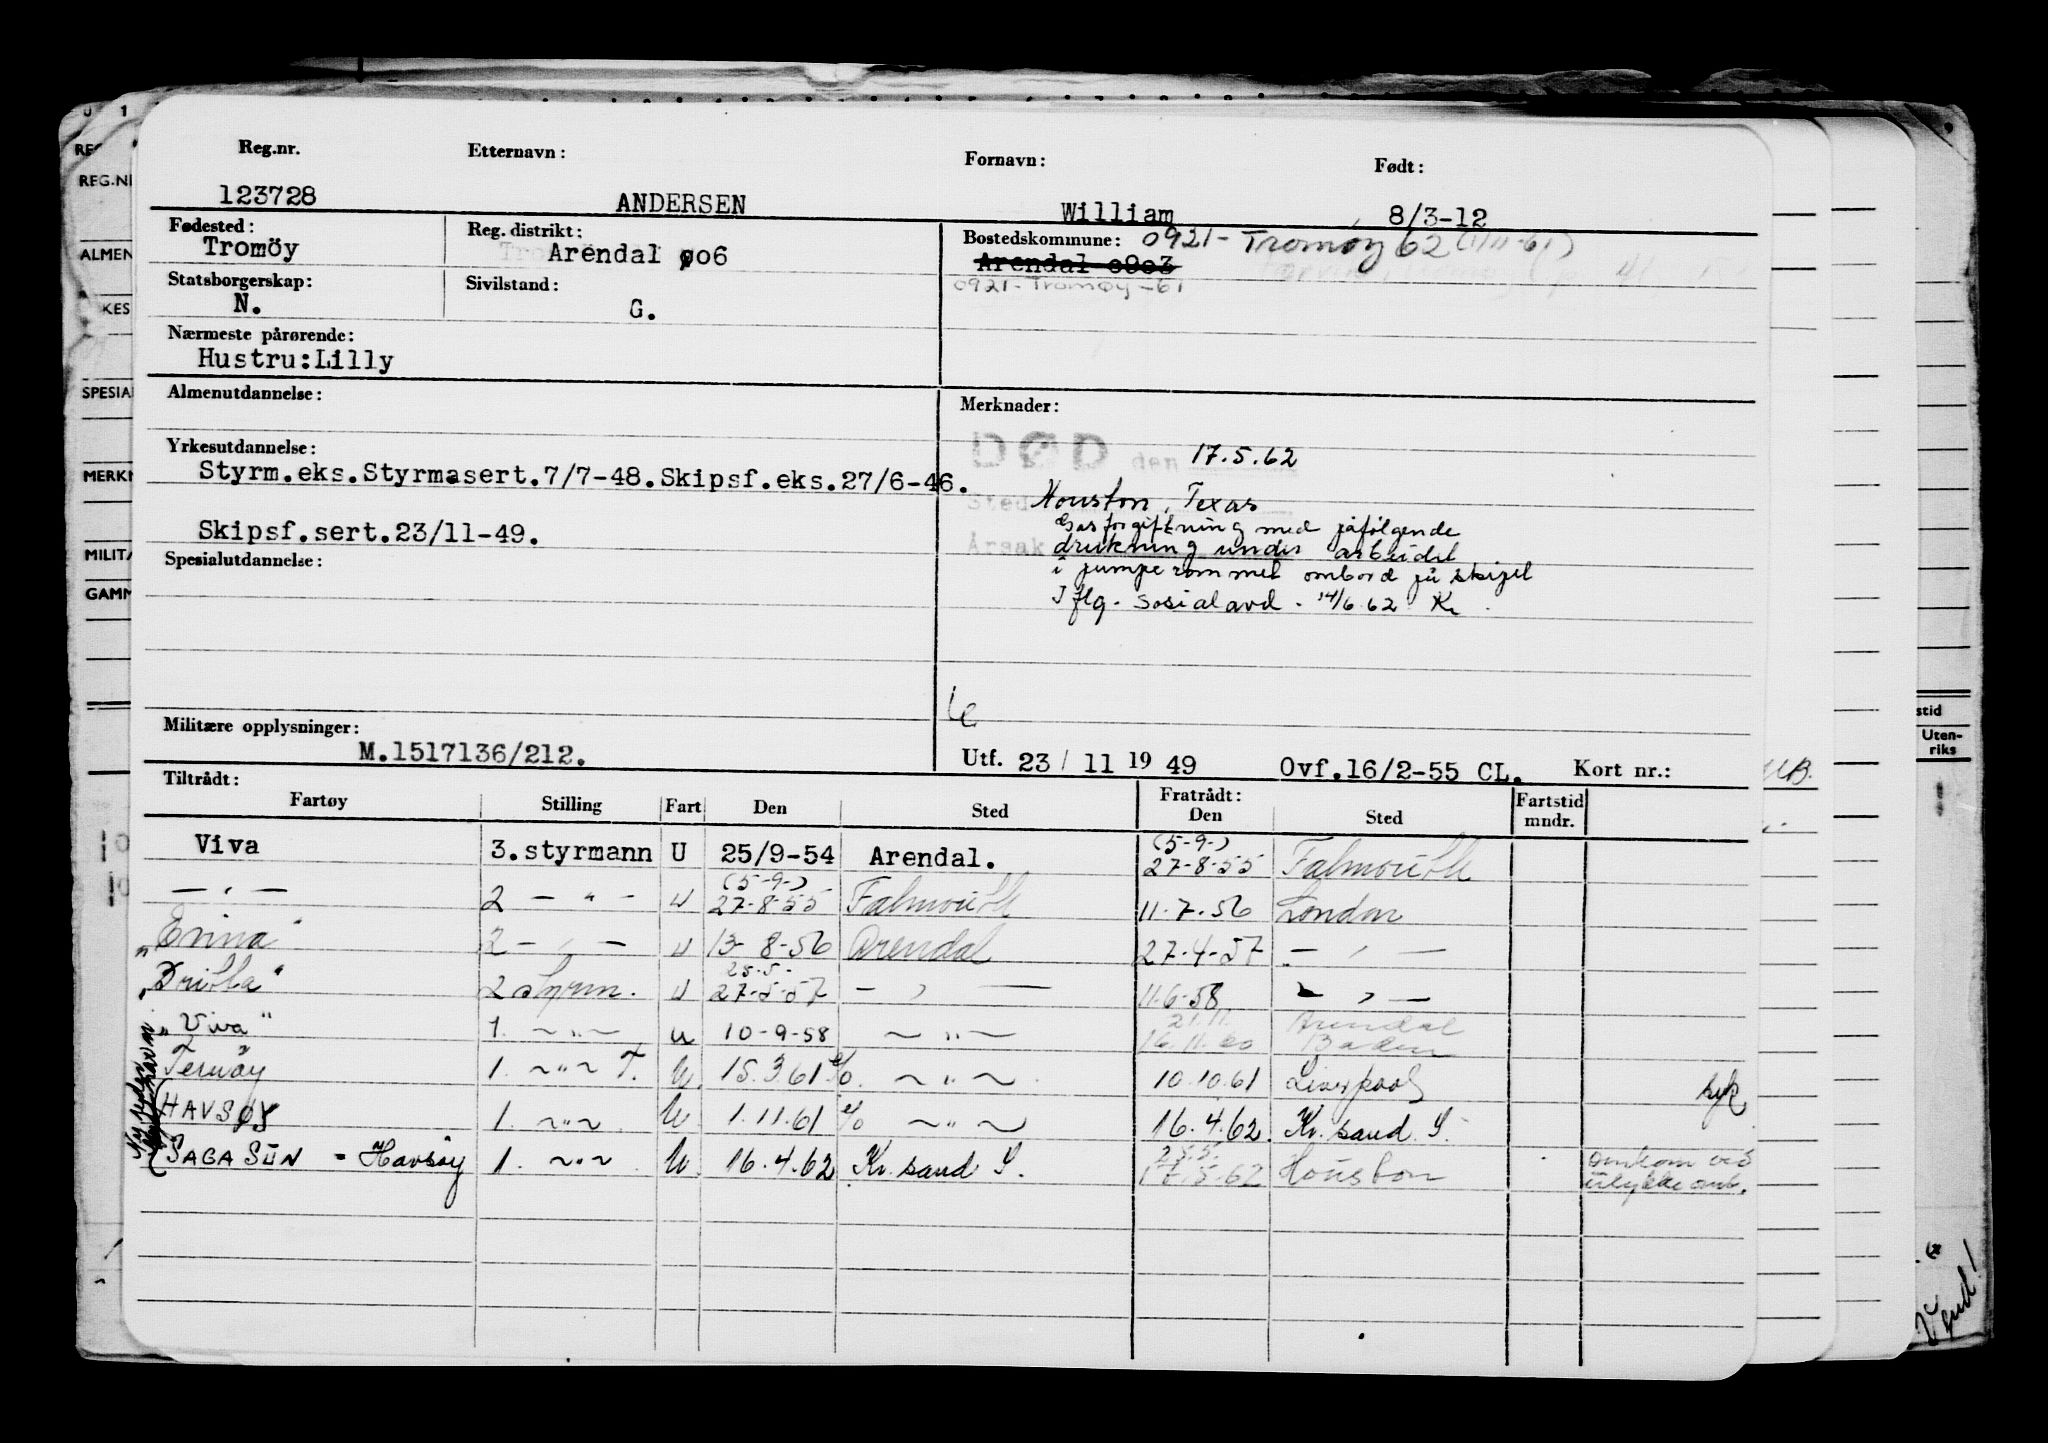 Reg.nr. Etternavn: Fornavn: Født:
123728 ANDERSEN William 8/3-12
Fødested: Reg. distrikt: Bostedskommune: 0921- Tromøy 62 (1/11-61)
Tromöy Arendal 006 Arendal 0903
0921-Tromøy-61
Statsborgerskap: Sivilstand:
N. G.
Nærmeste pårørende:
Hustru:Lilly
Almenutdannelse: Merknader:
Yrkesutdannelse: DØD den 17.5.62
Styrm.eks.Styrmasert.7/7-48.Skipsf.eks.27/6-46.
Sted Houston, Texas
Gassforgiftning med påfølgende
Skipsf.sert.23/11-49.
Årsak drukning under arbeidet
Spesialutdannelse:
i pumperommet ombord på skipet
I flg. Sosialavd. 14/6.62 Kr.
Militære opplysninger:
M.1517136/212. Utf. 23/11 19 49 Ovf.16/2-55 CL. Kort nr.:
Tiltrådt: Fratrådt:
Fartøy Stilling Fart Den Sted Den Sted Fartstid mndr.
Viva 3.styrmann U 25/9-54 Arendal. (5-9-) 27-8-55 Falmouth
— " — 2 — " — U (5-9-) 27-8-55 Falmouth 11.7.56 London
"Erina" 2 — " — U 13-8-56 Arendal 27-4-57 — " —
"Drilla" 2 styrm. U 25-5- 27-5-57 — " — 11.6-58 — " —
"Viva" 1. — " — U 10-9-58 — " — 21.11. 16.11.60 Arendal Baden
Ternøy 1. — " — T. U. 15.3.61 — " — 10.10.61 Liverpool syk
HAVSØY 1. — " — U 1.11.61 — " — 16.4.62. Kr. sand S.
SAGA SUN - Havsøy 1. — " — U. 16.4.62 Kr. sand S. 25.5. 17.5.62 Houston omkom ved
ulykke omb.
REG.NR
ALMEN
KES
SPESIAL
MERKN
MILITÆ
GAMM
stid
Uten-
riks
Vend!